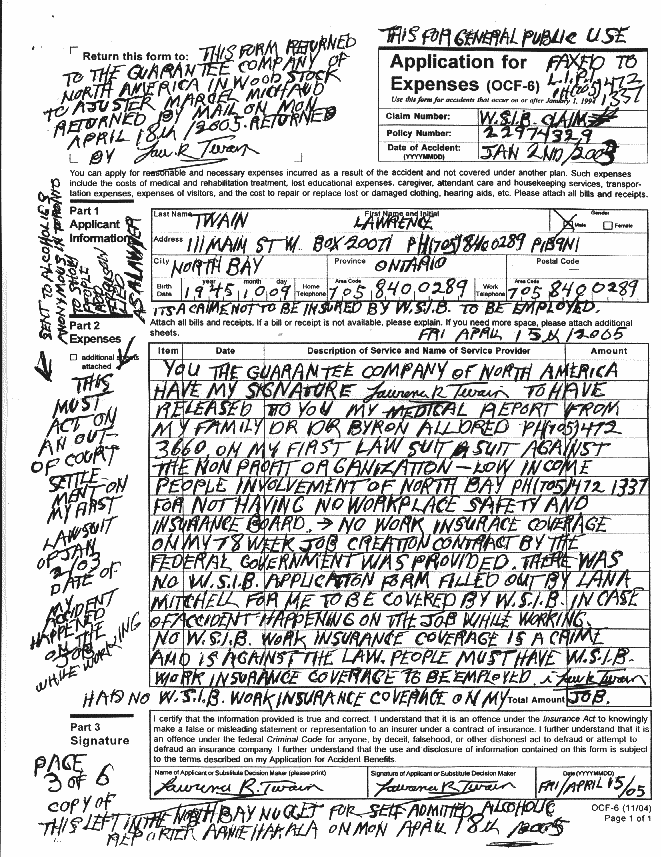 THIS FOR GENERAL PUBLIC USE
Return this form to: THIS FORM RETURNED
TO THE GUARANTEE COMPANY OF
NORTH AMERICA IN WOOD STOCK
TO ADJUSTER MARCEL MICHAUD
RETURNED BY MAIL ON MON
APRIL 18th/2005 RETURNED
BY Law. R Twain
Application for
Expenses (OCF-6)
FAXED TO
L.I.P.I
PH(705)472
1337
Use this form for accidents that occur on or after January 1, 1994
Claim Number: W.S.I.B. CLAIM #
Policy Number: 22974329
Date of Accident: JAN 2ND/2003
(YYYYMMDD)
You can apply for reasonable and necessary expenses incurred as a result of the accident and not covered under another plan. Such expenses
include the costs of medical and rehabilitation treatment, lost educational expenses, caregiver, attendant care and housekeeping services, transpor-
tation expenses, expenses of visitors, and the cost to repair or replace lost or damaged clothing, hearing aids, etc. Please attach all bills and receipts.
SENT TO ALCOHOLICS
ANONYMOUS IN TORONTO
TO SHOW
AS A LAWYER
Part 1
Applicant
Information
Last Name TWAIN First Name and Initial LAWRENCE Gender Male Female
Address 111 MAIN ST W. BOX 20071 PH(705)840 0289 P1B9N1
City NORTH BAY Province ONTARIO Postal Code
Birth Date year month day 1945 10 09 Home Telephone Area Code 705 840 0289 Work Telephone Area Code 705 840 0289
ITS A CRIME NOT TO BE INSURED BY W.S.I.B. TO BE EMPLOYED.
Part 2
Expenses
additional sheets
attached
Attach all bills and receipts. If a bill or receipt is not available, please explain. If you need more space, please attach additional
sheets. FRI APRIL 15th/2005
Item Date Description of Service and Name of Service Provider Amount
YOU THE GUARANTEE COMPANY OF NORTH AMERICA
HAVE MY SIGNATURE Lawrence R. Twain TO HAVE
RELEASED TO YOU MY MEDICAL REPORT FROM
MY FAMILY DR DR BYRON ALLORED PH(705)472
3660, ON MY FIRST LAW SUIT A SUIT AGAINST
THE NON PROFIT ORGANIZATION - LOW INCOME
PEOPLE INVOLVEMENT OF NORTH BAY PH(705)472 1337
FOR NOT HAVING NO WORKPLACE SAFETY AND
INSURANCE BOARD. → NO WORK INSURACE COVERAGE
ON MY 78 WEEK JOB CREATION CONTRACT BY THE
FEDERAL GOVERNMENT WAS PROVIDED. THERE WAS
NO W.S.I.B. APPLICATION FORM FILLED OUT BY LANA
MITCHELL FOR ME TO BE COVERED BY W.S.I.B. IN CASE
OF ACCIDENT HAPPENING ON THE JOB WHILE WORKING.
NO W.S.I.B. WORK INSURANCE COVERAGE IS A CRIME
AND IS AGAINST THE LAW. PEOPLE MUST HAVE W.S.I.B.
WORK INSURANCE COVERAGE TO BE EMPLOYED. Law R Twain
HAD NO W.S.I.B. WORK INSURANCE COVERAGE ON MY Total Amount JOB.
THIS
MUST
ACT ON
AN OUT-
OF COURT
SETTLE
MENT ON
MY FIRST
LAWSUIT
OF JAN
2/03
DATE OF
MY
ACCIDENT
HAPPENED
ON THE
JOB
WHILE WORKING
Part 3
Signature
I certify that the information provided is true and correct. I understand that it is an offence under the Insurance Act to knowingly
make a false or misleading statement or representation to an insurer under a contract of insurance. I further understand that it is
an offence under the federal Criminal Code for anyone, by deceit, falsehood, or other dishonest act to defraud or attempt to
defraud an insurance company. I further understand that the use and disclosure of information contained on this form is subject
to the terms described on my Application for Accident Benefits.
Name of Applicant or Substitute Decision Maker (please print) Signature of Applicant or Substitute Decision Maker Date (YYYYMMDD)
Lawrence R. Twain Lawrence R. Twain FRI/APRIL 15/05
PAGE
3 OF 6
COPY OF
THIS LEFT IN THE NORTH BAY NUGGET FOR SELF ADMITTED ALCOHOLIC
REPORTER ANNE HAKALA ON MON APRIL 18th/2005
OCF-6 (11/04)
Page 1 of 1